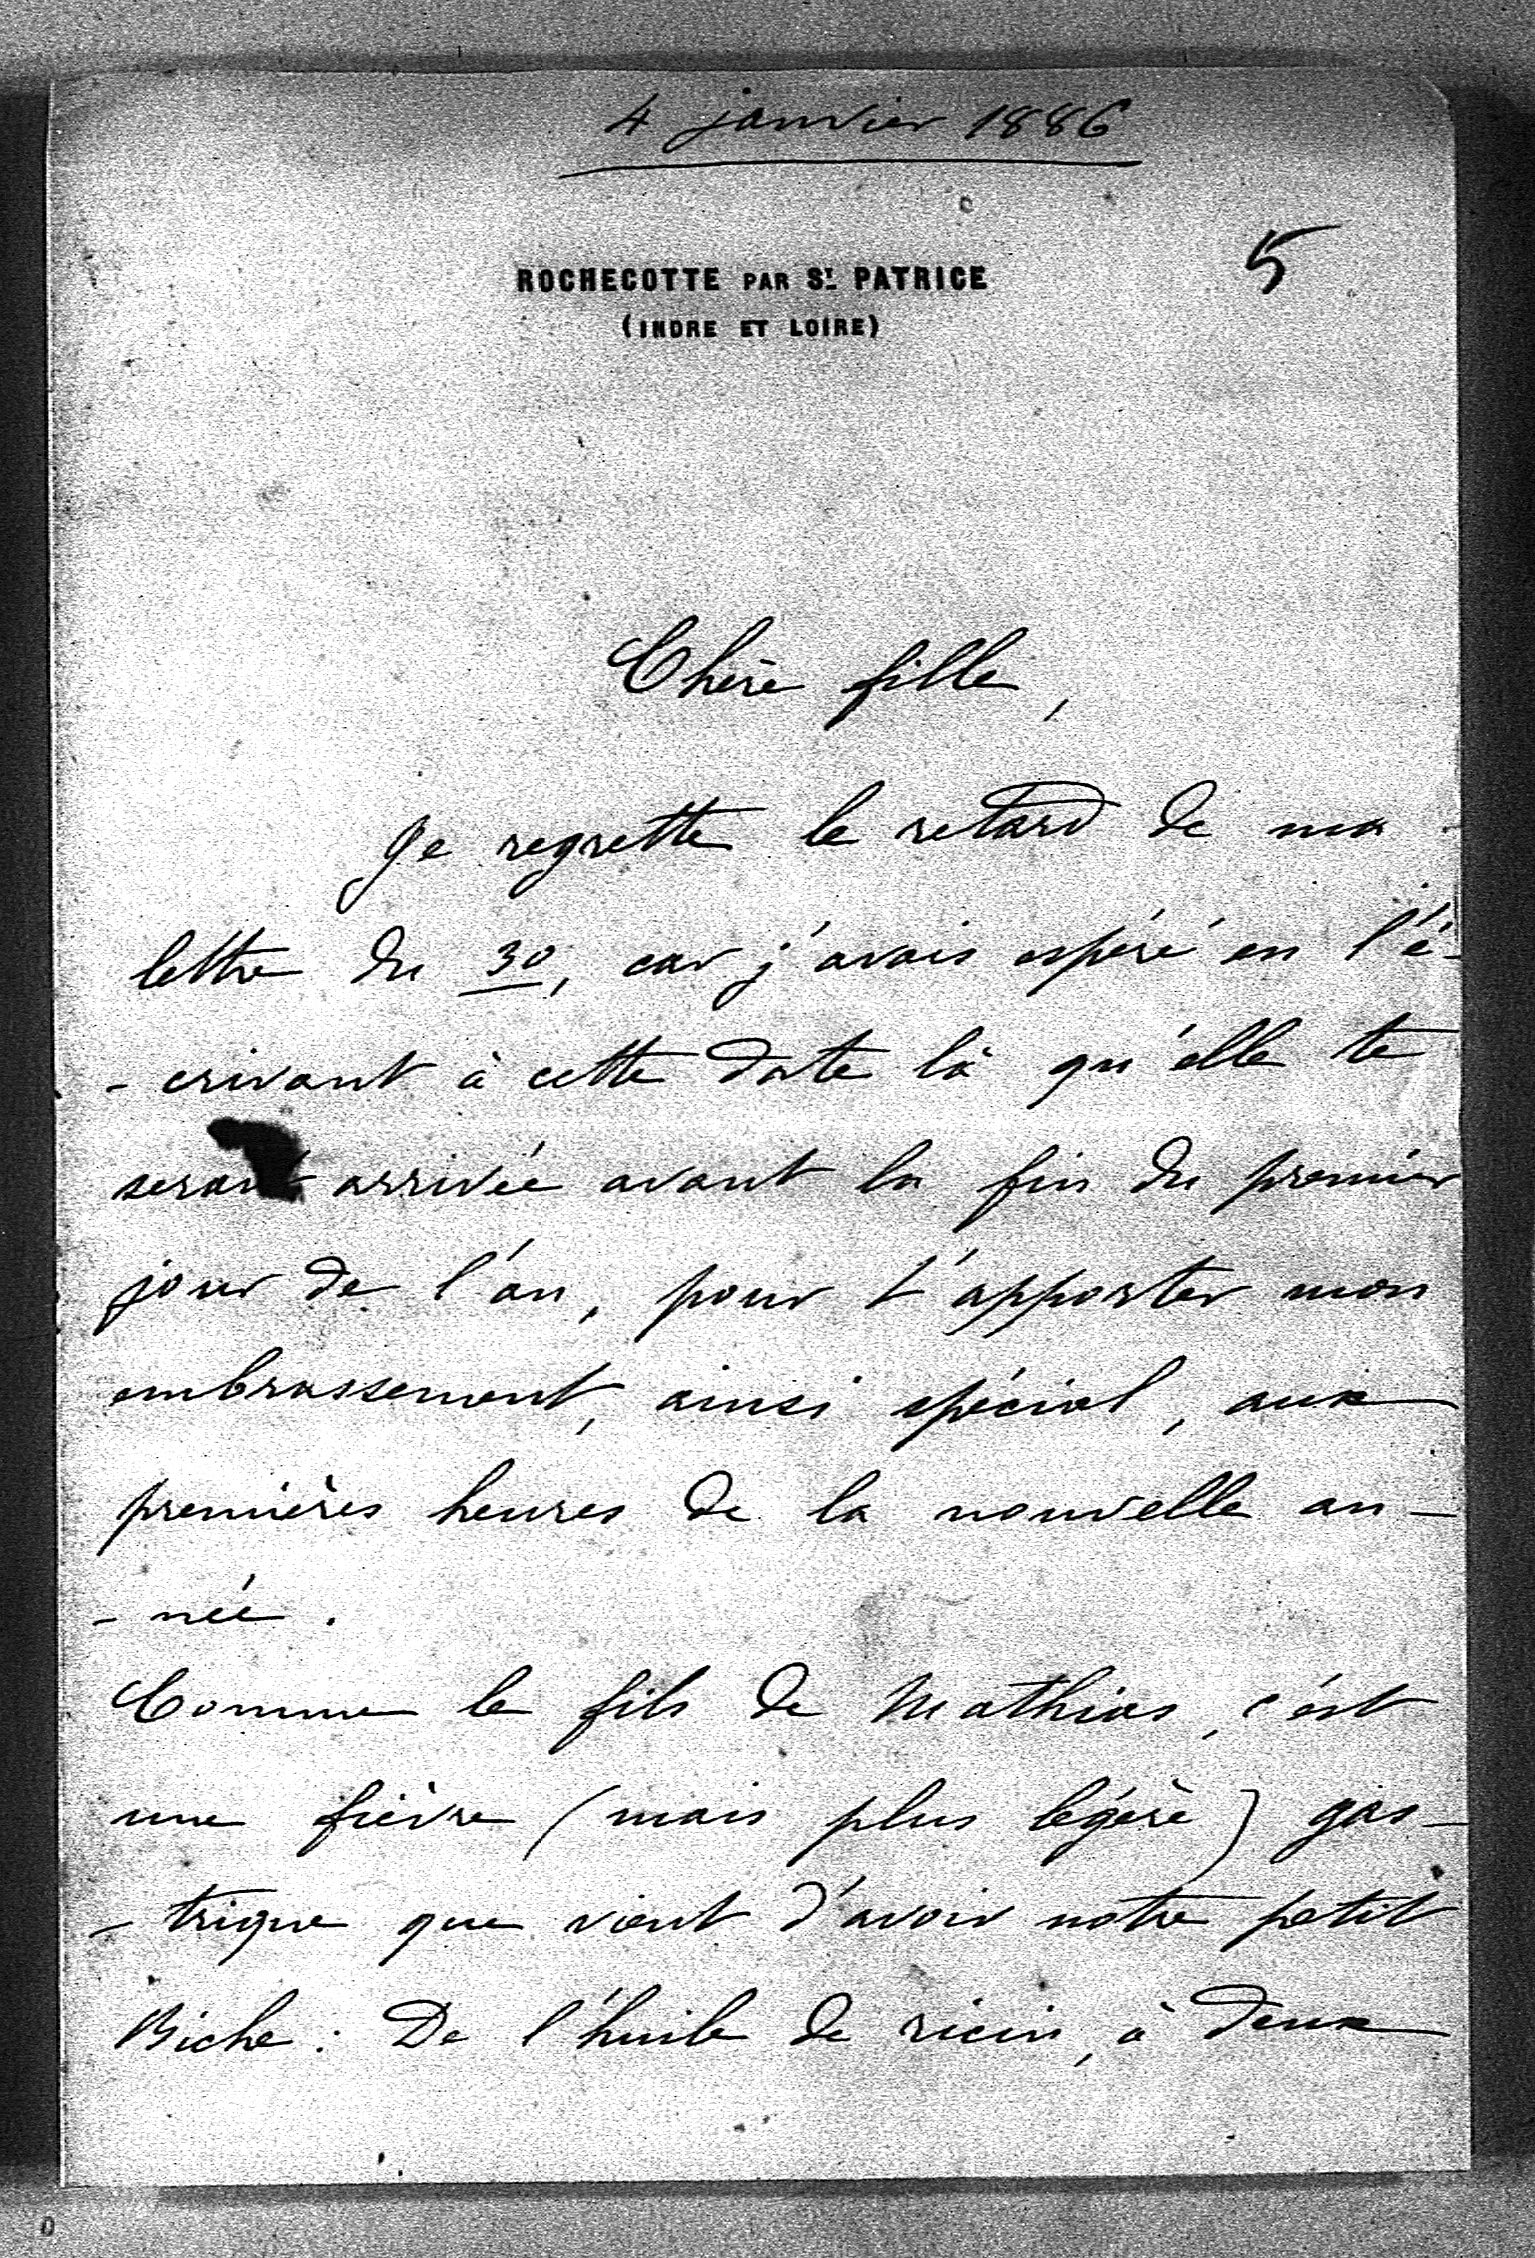 4 janvier 1886
5
ROCHECOTTE PAR ST PATRICE
(INDRE ET LOIRE)
Chère fille,
Je regrette le retard de ma
lettre du 30, car j'avais espéré en l'é-
-crivant à cette date là qu'elle te
serait arrivée avant la fin du premier
jour de l'an, pour t'apporter mon
embrassement, ainsi spécial, aux
premières heures de la nouvelle an-
-née.
Comme le fils de Mathias, c'est
une fièvre (mais plus légère) gas-
-trique que vient d'avoir notre petit
Biche : De l'huile de ricin, à deux
0